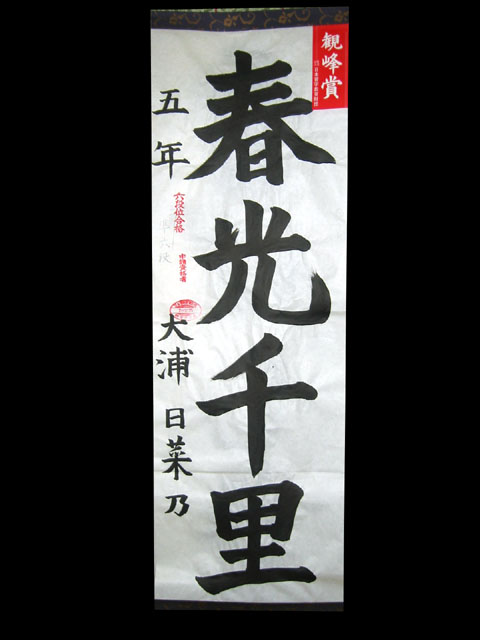 観峰賞
春光千里
五年 大浦日菜乃
六段位合格